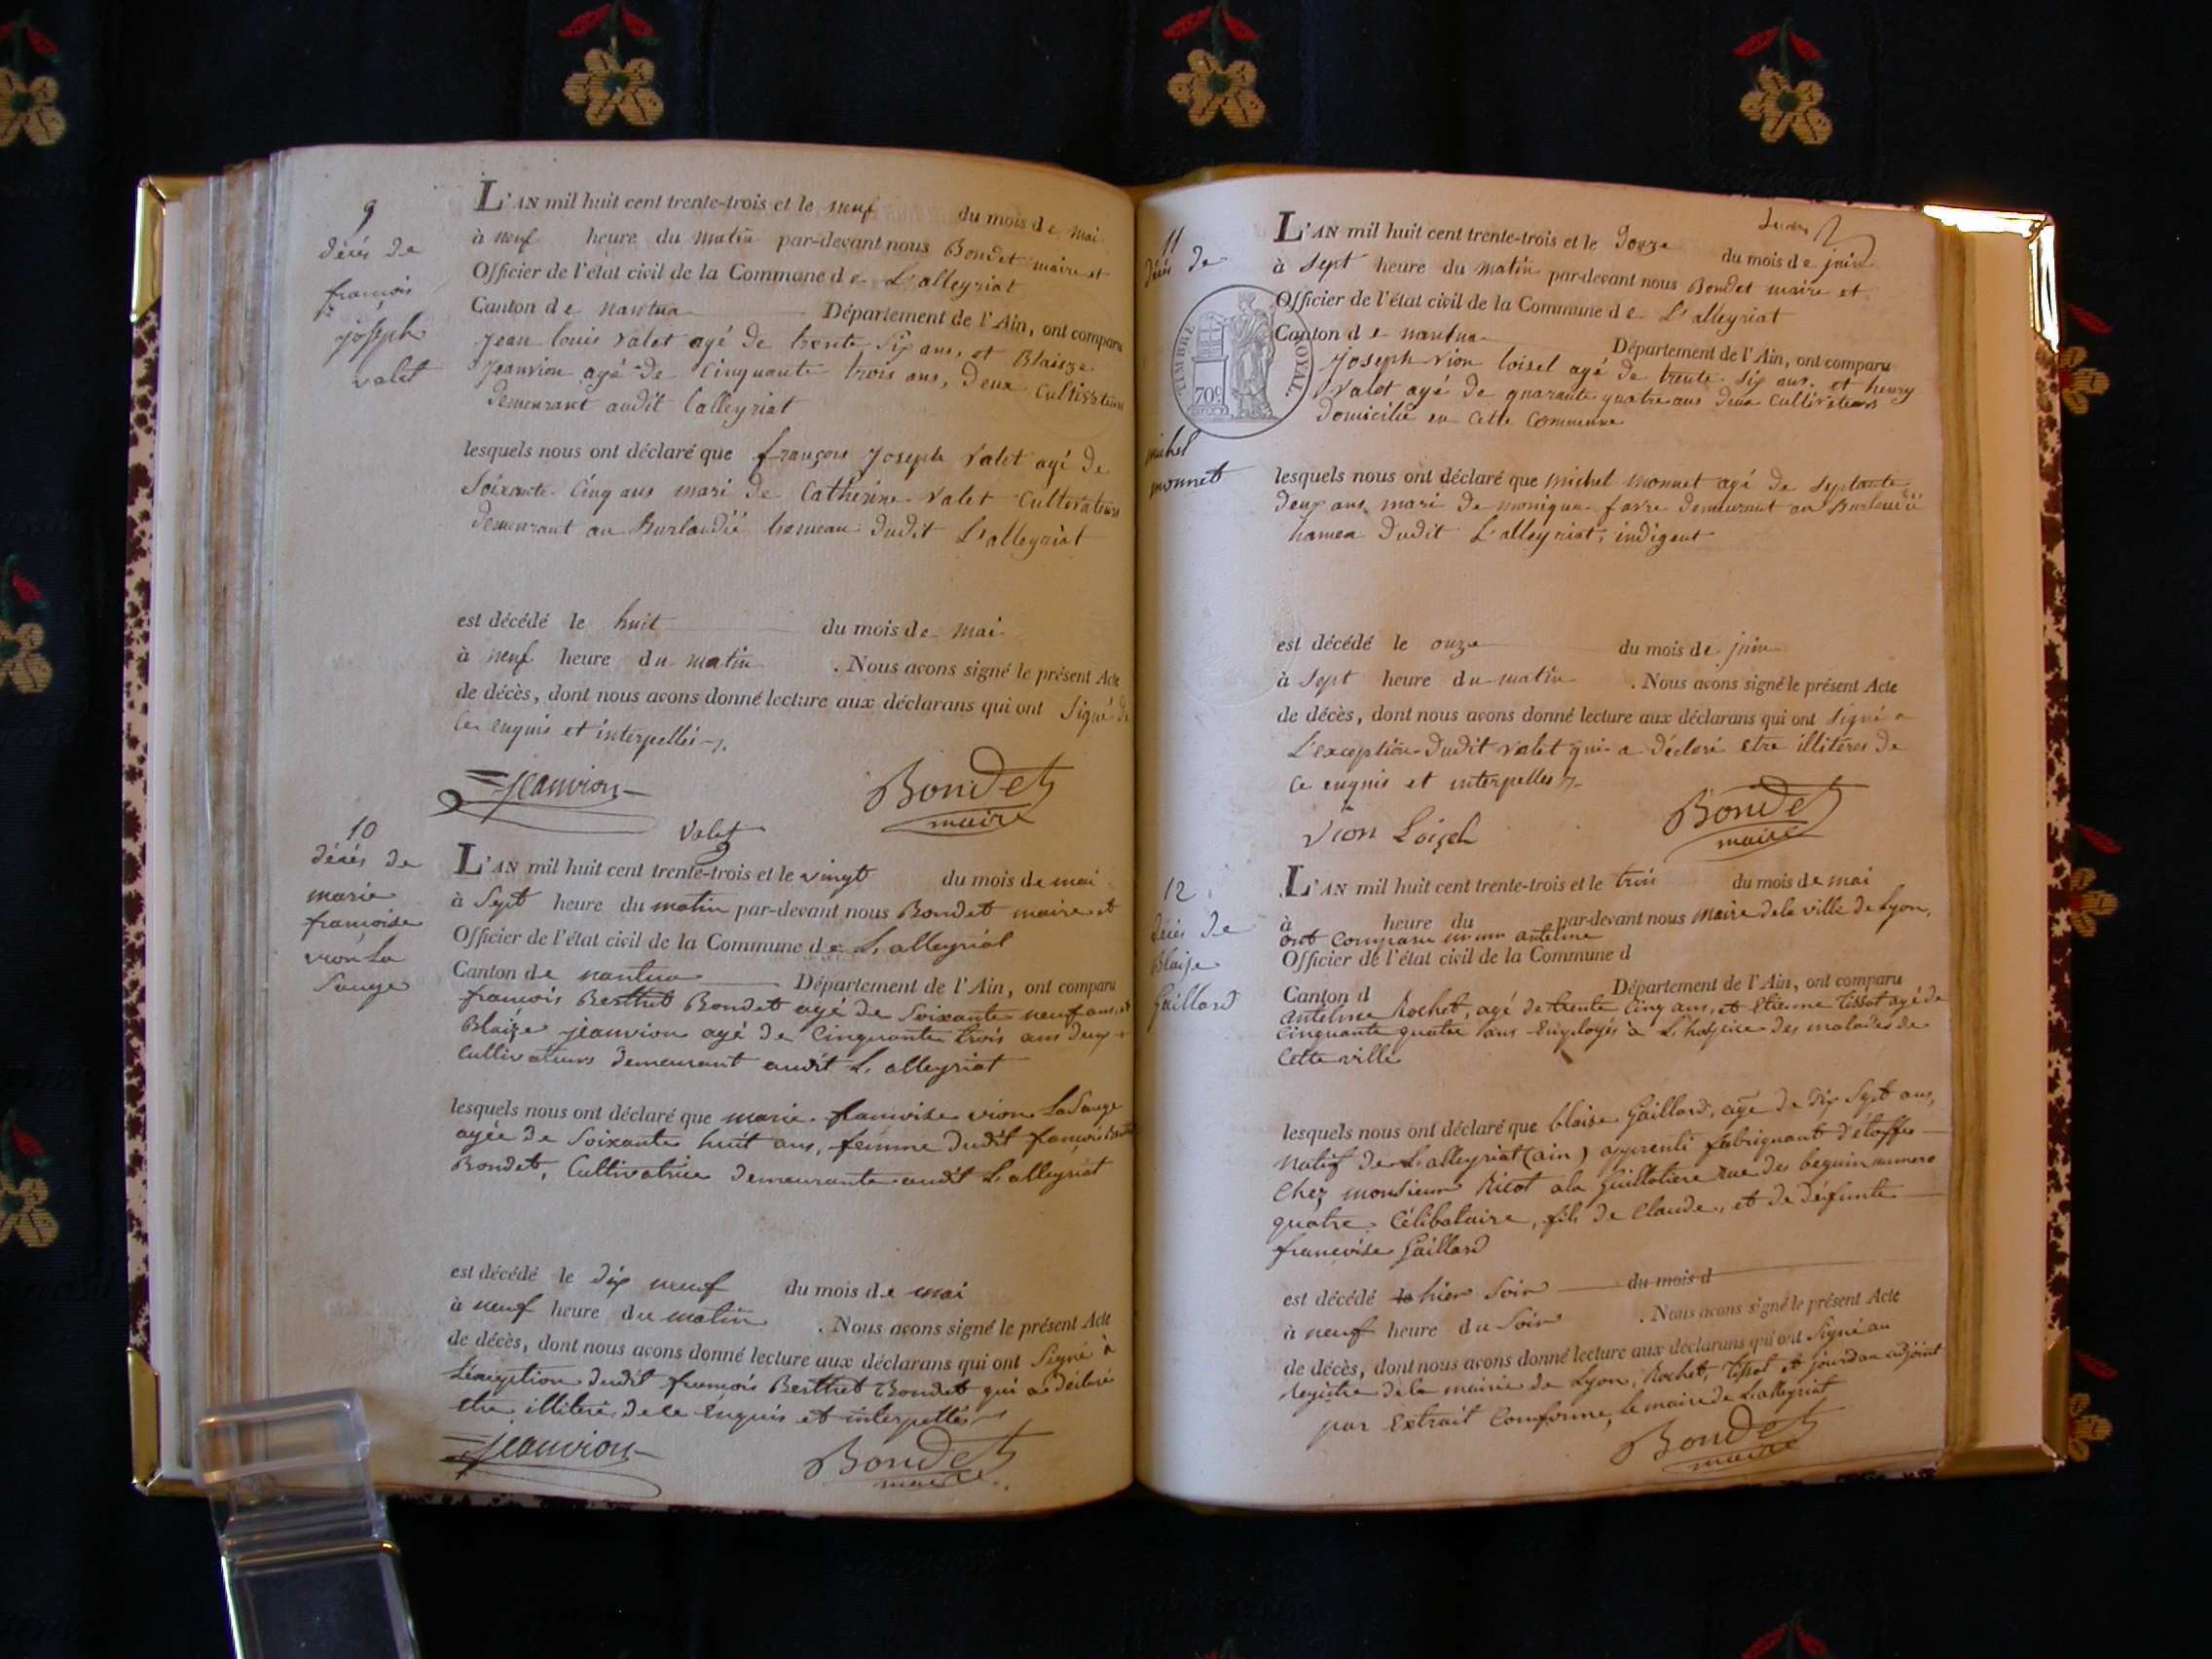 9
décès de
françois
joseph
valet
L'AN mil huit cent trente-trois et le neuf du mois de mai
à neuf heure du matin par-devant nous Bondet maire et
Officier de l'état civil de la Commune de L'alleyriat
Canton de nantua Département de l'Ain, ont comparu
jean louis valet agé de trente Six ans, et Blaisze
jeanvion agé de Cinquante trois ans, deux Cultivateurs
demeurant audit Lalleyriat
lesquels nous ont déclaré que françois joseph valet agé de
Soixante Cinq ans mari de Catherine valet Cultivateurs
demeurant au Burlandié hameau dudit L'alleyriat
est décédé le huit du mois de mai
à neuf heure du matin . Nous avons signé le présent Acte
de décès, dont nous avons donné lecture aux déclarans qui ont Signé de
Ce enquis et interpellés
jeanvion Bondet
maire
Valet
10
décès de
marie
françoise
vion La
Sauge
L'AN mil huit cent trente-trois et le vingt du mois de mai
à Sept heure du matin par-devant nous Bondet maire et
Officier de l'état civil de la Commune de L'alleyriat
Canton de nantua Département de l'Ain, ont comparu
françois Berthet Bondet agé de Soixante neuf ans, et
Blaize jeanvion agé de Cinquante trois ans deux
Cultivateurs demeurant audit L'alleyriat
lesquels nous ont déclaré que marie françoise vion LaSauge
agée de Soixante huit ans, femme dudit françois
Bondet, Cultivatrice demeurante audit L'alleyriat
est décédé le dix neuf du mois de mai
à neuf heure du matin . Nous avons signé le présent Acte
de décès, dont nous avons donné lecture aux déclarans qui ont Signé à
L'exception dudit françois Berthet Bondet qui a déclaré
etre illitéré de ce Enquis et interpellés
jeanvion Bondet
maire
11
décès de
michel
monnet
TIMBRE ROYAL
70c
L'AN mil huit cent trente-trois et le douze du mois de juin
à Sept heure du matin par-devant nous Bondet maire et
Officier de l'état civil de la Commune de L'alleyriat
Canton de nantua Département de l'Ain, ont comparu
joseph vion loisel agé de trente Six ans et henry
valet agé de quarante quatre ans deux Cultivateurs
domicilié en Cette Commune
lesquels nous ont déclaré que michel monnet agé de Septante
deux ans mari de monique favre demeurant au Burlandié
hamea dudit L'alleyriat, indigent
est décédé le onze du mois de juin
à Sept heure du matin . Nous avons signé le présent Acte
de décès, dont nous avons donné lecture aux déclarans qui ont Signé a
L'exception dudit valet qui a déclaré etre illiteres de
Ce enquis et interpelles
Vion Loisel Bondet
maire
12
décès de
Blaise
Gaillard
L'AN mil huit cent trente-trois et le trois du mois de mai
à heure du par-devant nous Maire de la ville de Lyon,
ont comparu antelme
Officier de l'état civil de la Commune d
Canton d Département de l'Ain, ont comparu
Antelme Rochet, agé de trente Cinq ans, et Etienne Tissot agé de
Cinquante quatre ans Employés à L'hospice des malades de
Cette ville
lesquels nous ont déclaré que blaise Gaillard, agé de dix Sept ans,
natif de L'alleyriat (ain) apprenti fabriquant d'étoffes
Chez monsieur Ricot a la guillotiere rue des beguin numero
quatre Célibataire, fils de Claude, et de défunte
françoise Gaillard
est décédé le hier Soir du mois d
à neuf heure du Soir . Nous avons signé le présent Acte
de décès, dont nous avons donné lecture aux déclarans qui ont Signé au
Registre de la mairie de Lyon, Rochet, Tissot et jourdan adjoint
par Extrait Conforme, le maire de L'alleyriat
Bondet
maire